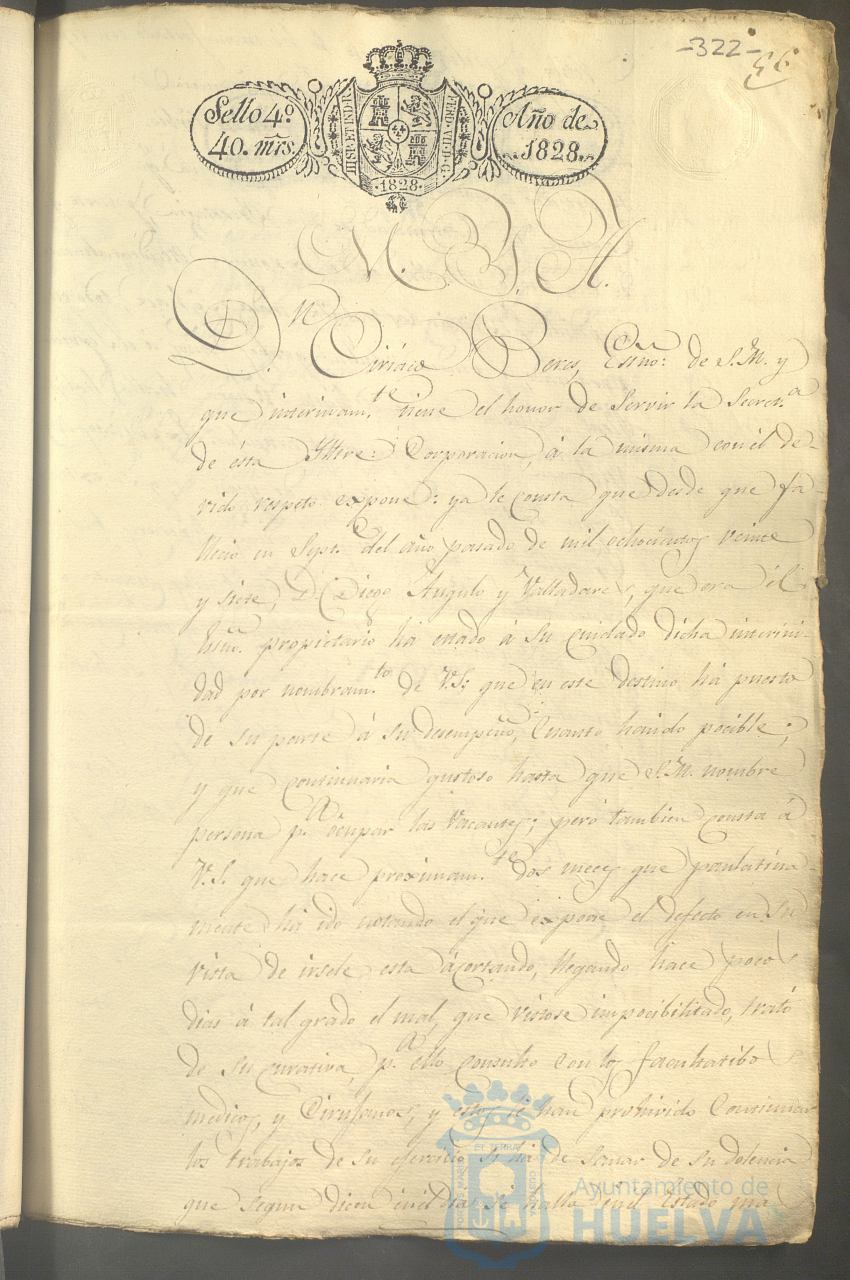 -322-
Sello 4º
40. mrs.
HISP. ET IND. R.
FERD. VII. D. G.
·1828·
Año de
1828.
M. Y. A.
D.n Ciriáco Beres, Essno: de S.M. y
que interinam.te tiene el honor de Servir la Secret.a
de ésta Yltre: Corporacion, á la misma con el de-
vido respeto expone: ya le consta que desde que fa-
llecio en Sept.e del año pasado de mil ochocientos veinte
y siete, D. Diego Angulo y Valladares, que era él
propietario ha estado á su cuidado dicha interini-
dad por nombram.to de V.S: que en este destino há puesto
de su parte á su desempeño, cuanto hasido pocible;
y que continuaria gustoso hasta que S.M. nombre
persona p.a ócupar las Vacantes; peró tambien consta á
V.S. que hace proximam.te dos meces que paulatina-
mente há ido notando el que expone, el defecto en su
vista de irsele esta ácortando, llegando hace poco
dias á tal grado el mal, que viendose impocibilitado, trató
de su curativa, p.a ello consultó con los facultatibos
medicos, y Cirujanos, y estos le han prohivido Continuar
los trabajos de su ejercicio si há de sanar de su dolencia
que segun dicen inil se halla en el estado ma
Ayuntamiento de
HUELVA